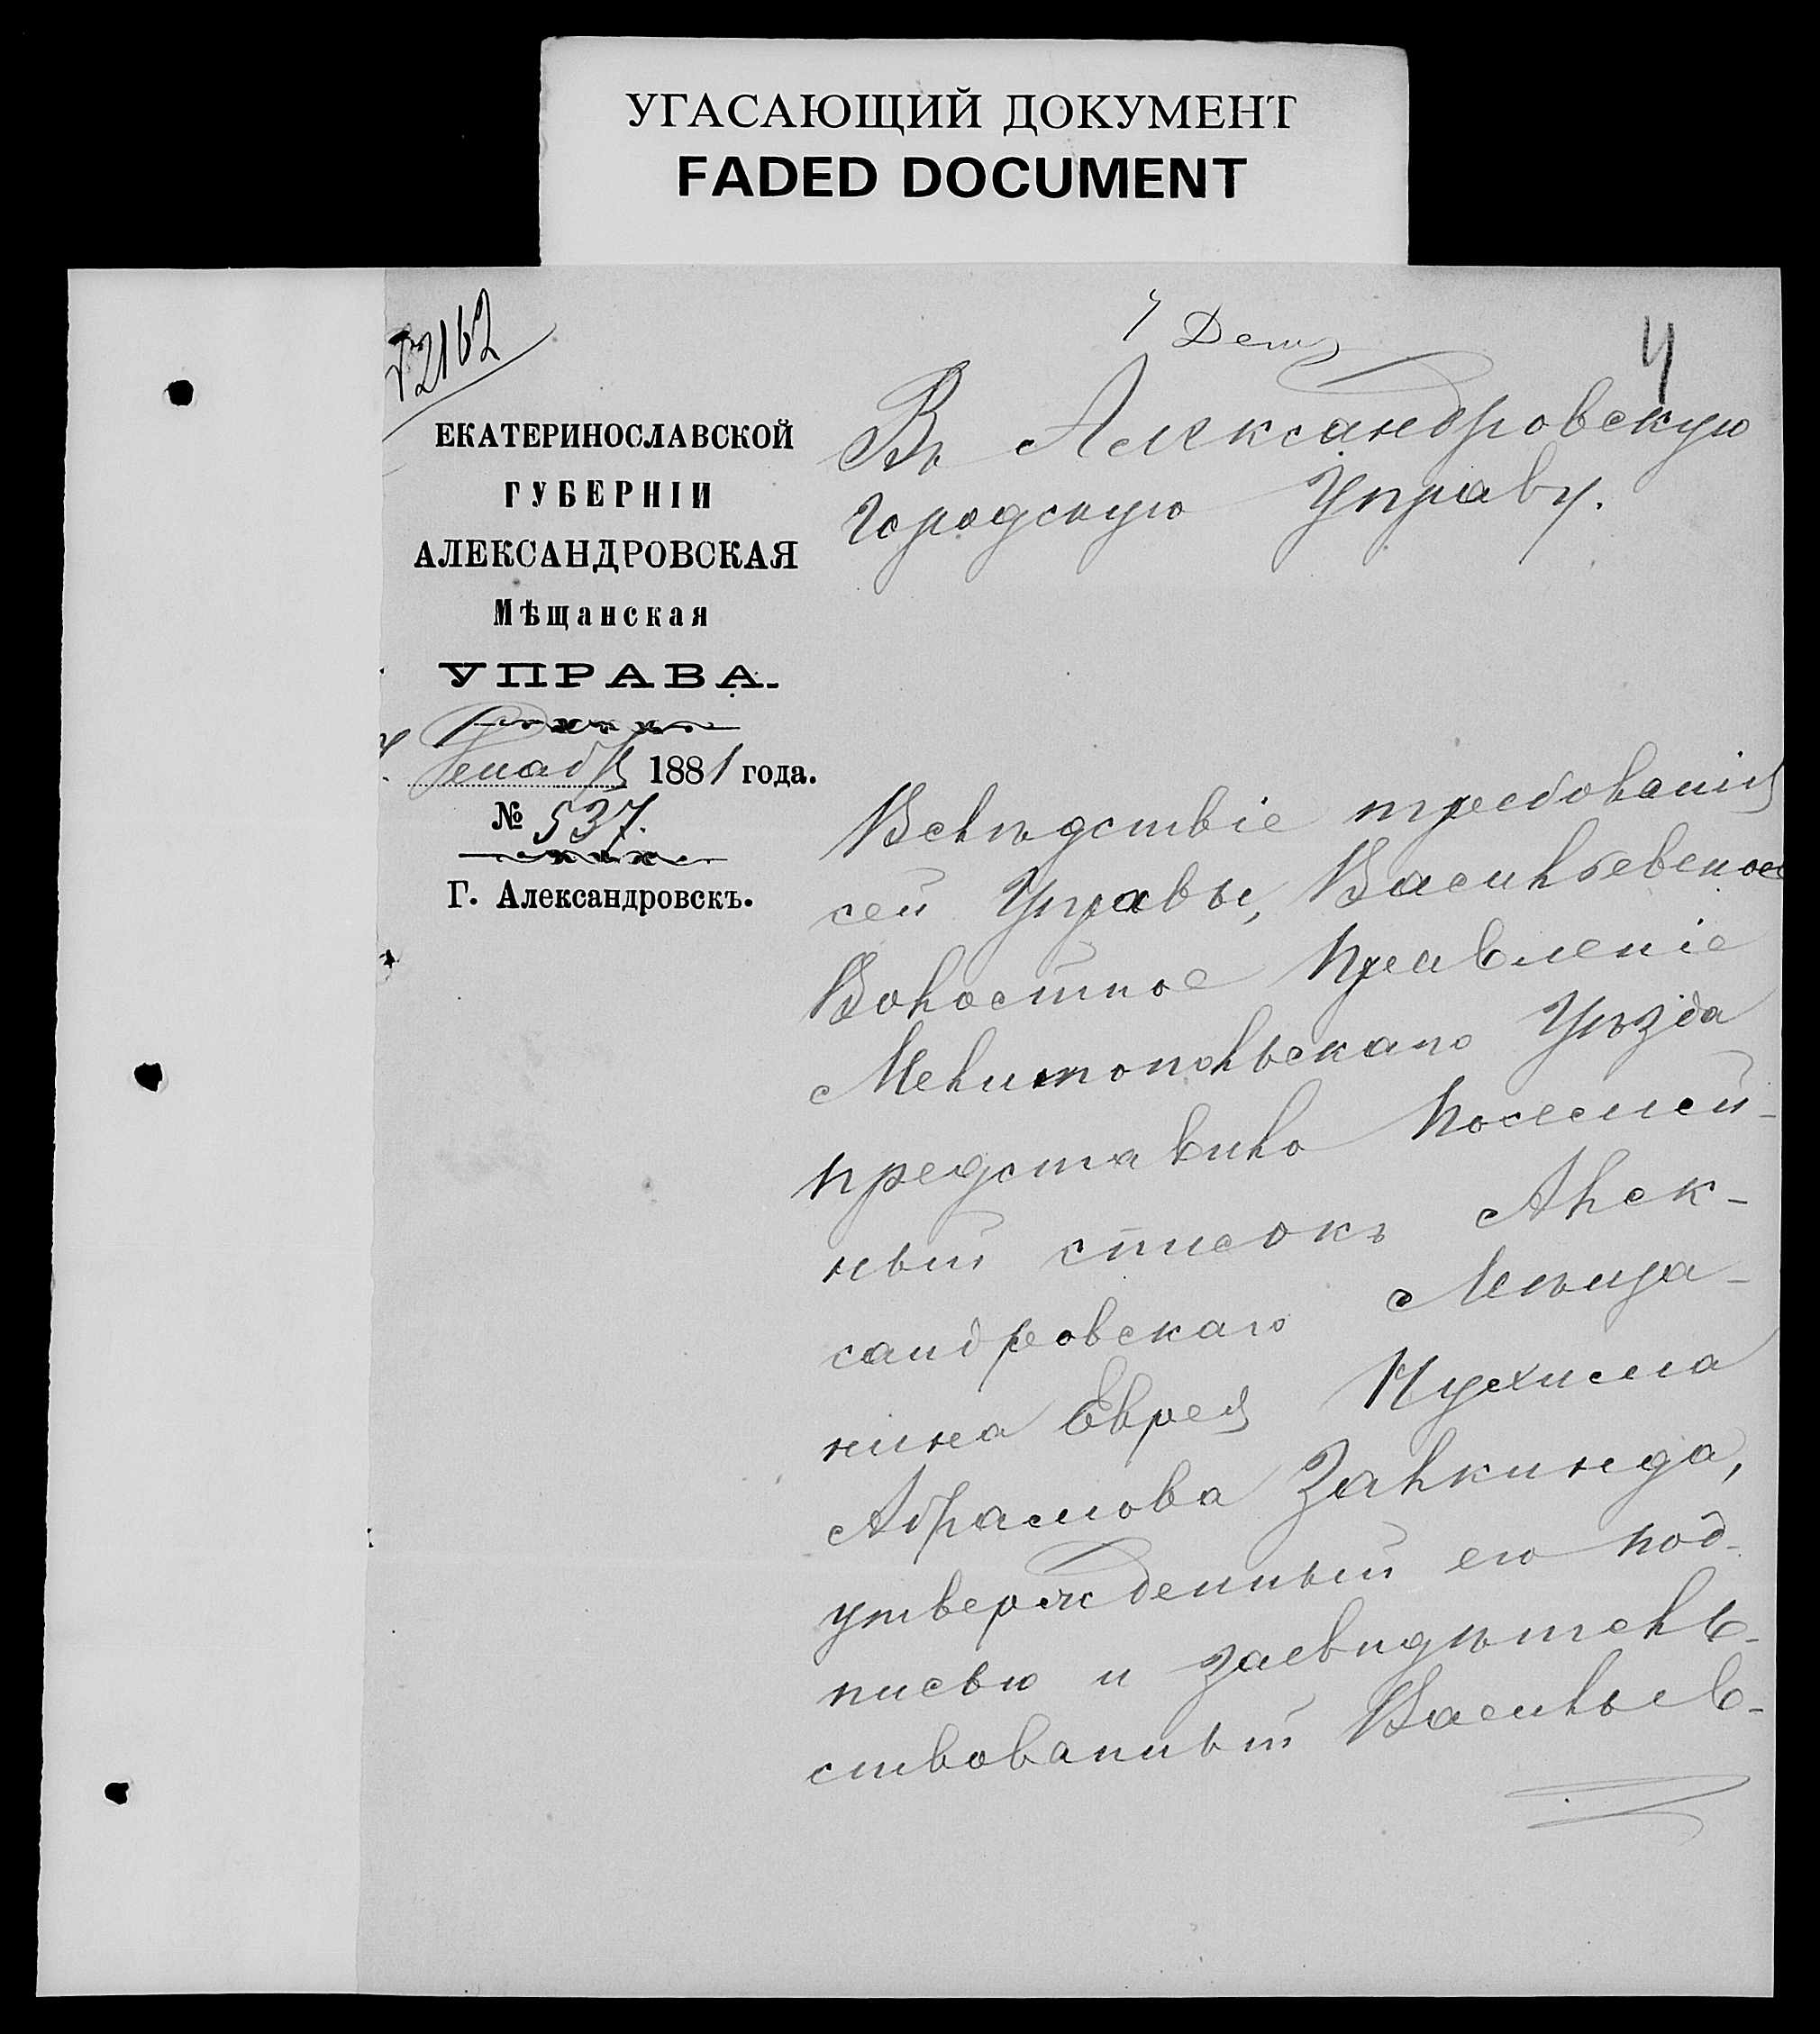 УГАСАЮЩИЙ ДОКУМЕНТ
FADED DOCUMENT
№ 2162
7 Дек
4
ЕКАТЕРИНОСЛАВСКОЙ
ГУБЕРНІИ
АЛЕКСАНДРОВСКАЯ
Мѣщанская
УПРАВА.
Декабр 1881 года.
№ 537.
Г. Александровскъ.
Въ Александровскую
Городскую Управу.
Вслѣдствіе требованія
сей Управы, Васильевское
Волостное Правленіе
Мелитопольскаго Уѣзда
представило посемей-
ный списокъ Алек-
сандровскаго Мѣща-
нина Еврея
Абрамова Залкинда,
утвержденный его под-
писью и засвидѣтель-
ствованный Васильев-